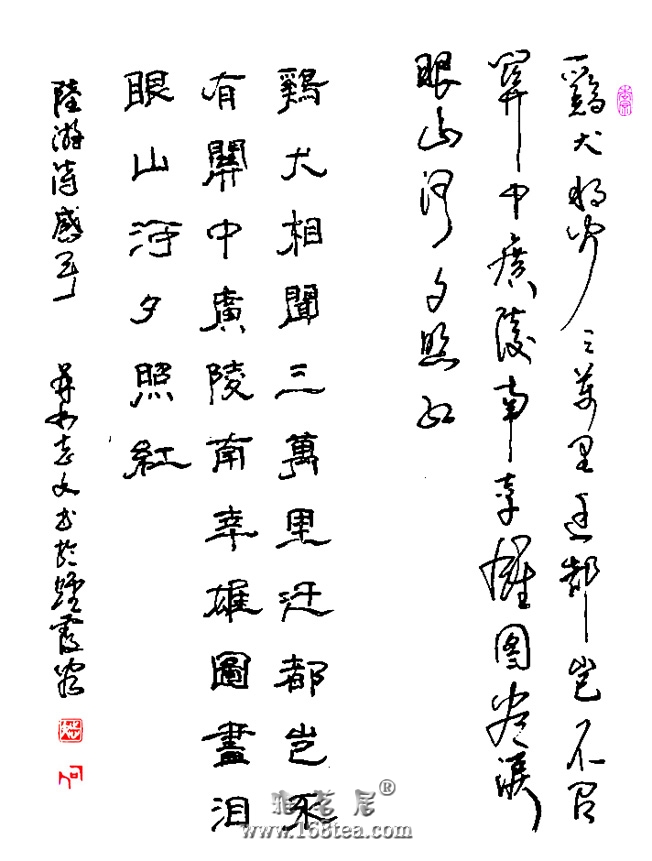 鷄犬相聞三萬里遷都豈不有
關中廣陵南幸雄圖盡淚
眼山河夕照紅
鷄犬相聞三萬里迁都豈不
有關中廣陵南幸雄圖盡泪
眼山河夕照紅
陸游詩感
志文书於
雅茗居®
www.168tea.com